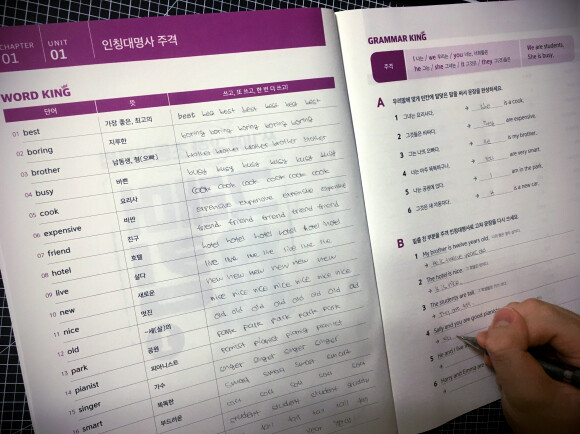 CHAPTER 01
UNIT 01
인칭대명사 주격
WORD KING
단어 뜻 쓰고, 또 쓰고, 한 번 더 쓰고!
01 best 가장 좋은, 최고의 best best best best best best best
02 boring 지루한 boring boring boring boring boring boring
03 brother 남동생, 형(오빠) brother brother brother brother brother
04 busy 바쁜 busy busy busy busy busy busy
05 cook 요리사 cook cook cook cook cook cook
06 expensive 비싼 expensive expensive expensive expensive
07 friend 친구 friend friend friend friend friend
08 hotel 호텔 hotel hotel hotel hotel hotel hotel
09 live 살다 live live live live live live
10 new 새로운 new new new new new new
11 nice 멋진 nice nice nice nice nice nice
12 old ~세(살)의 old old old old old old old
13 park 공원 park park park park park
14 pianist 피아니스트 pianist pianist pianist pianist
15 singer 가수 singer singer singer singer
16 smart 똑똑한 smart smart smart smart
부드러운
student student student
GRAMMAR KING
주격
I 나는 / we 우리는 / you 너는, 너희들은
he 그는 / she 그녀는 / it 그것은 / they 그(것)들은
We are students.
She is busy.
A 우리말에 맞게 빈칸에 알맞은 말을 써서 문장을 완성하세요.
1 그녀는 요리사다. → She is a cook.
2 그것들은 비싸다. → They are expensive.
3 그는 나의 오빠다. → He is my brother.
4 너는 아주 똑똑하구나. → You are very smart.
5 나는 공원에 있다. → I am in the park.
6 그것은 새 자동차다. → It is a new car.
B 밑줄 친 부분을 주격 인칭대명사로 고쳐 문장을 다시 쓰세요.
1 My brother is twelve years old.
→ He is twelve years old.
2 The hotel is nice.
→ It is nice.
3 The students are tall.
→ They are tall.
4 Sally and you are good pianists.
→ You
5 He and I live
6 Harry and Emma are